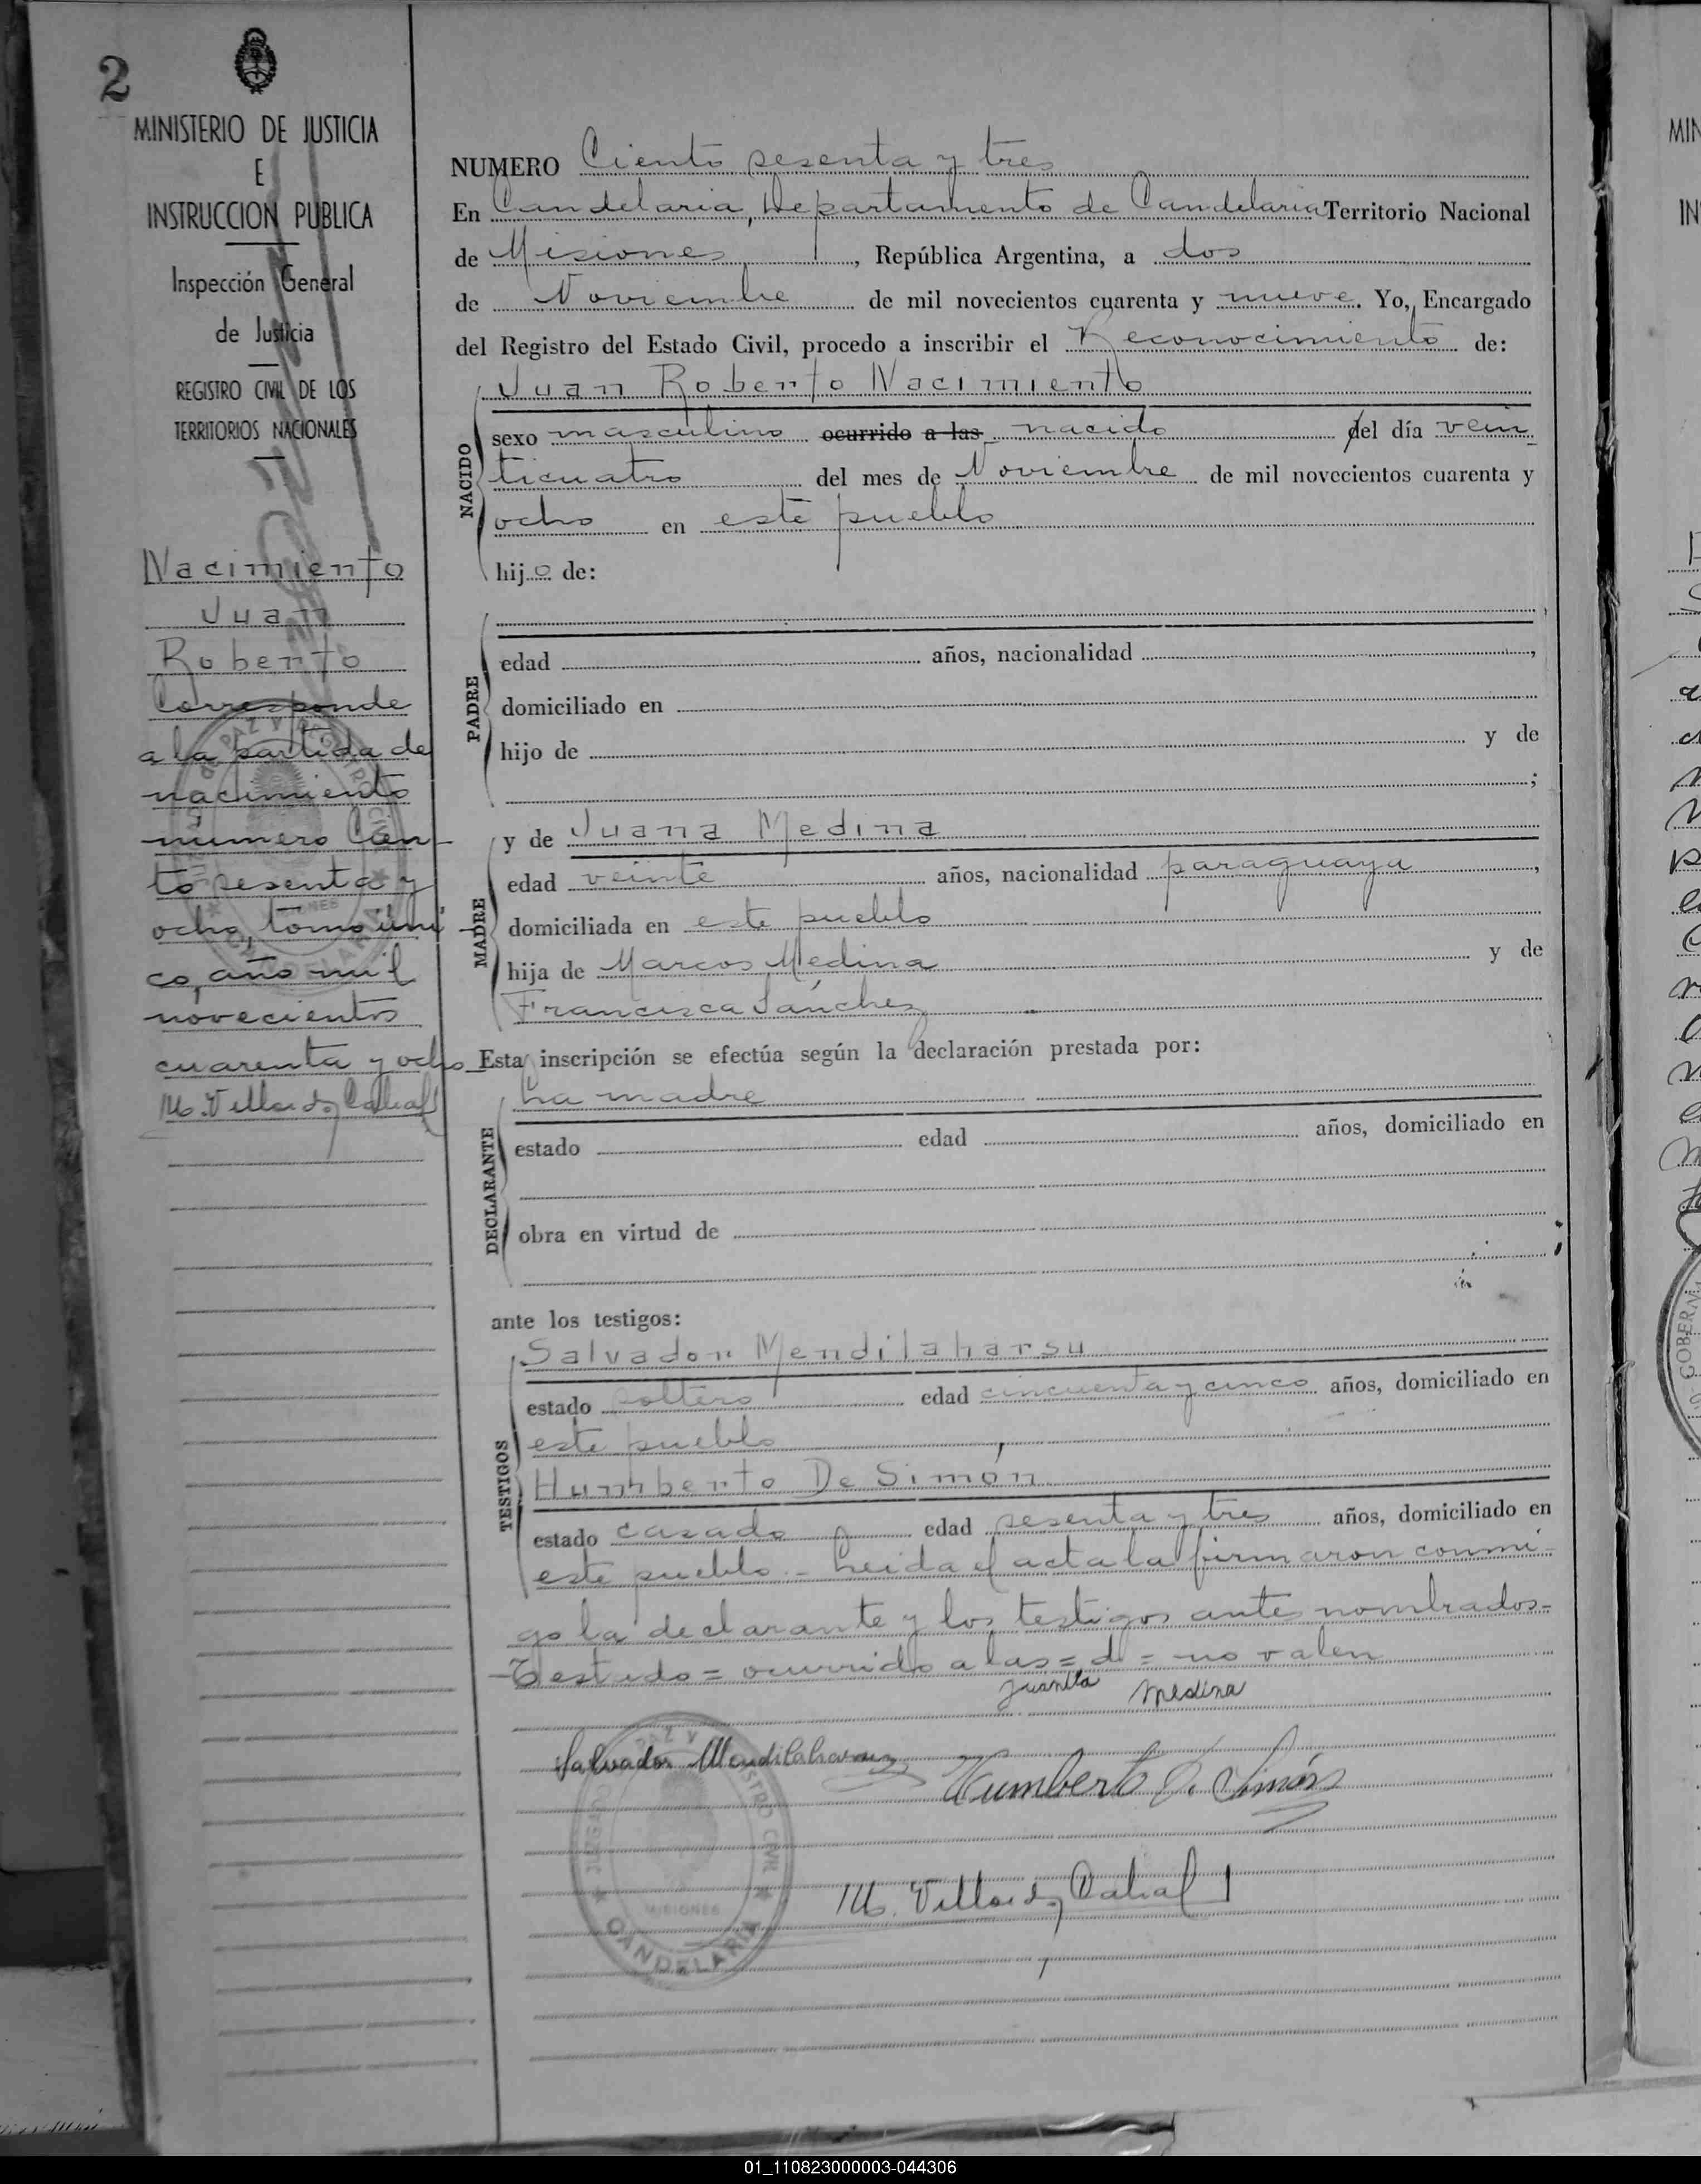 2
MINISTERIO DE JUSTICIA
E
INSTRUCCION PUBLICA
Inspección General
de Justicia
REGISTRO CIVIL DE LOS
TERRITORIOS NACIONALES
Nacimiento
Juan
Roberto
Corresponde
a la partida de
nacimiento
número Cien-
to sesenta y
ocho, tomo úni
co, año mil
novecientos
cuarenta y ocho
M. Villordo Cabral
NUMERO Ciento sesenta y tres
En Candelaria, Departamento de Candelaria Territorio Nacional
de Misiones, República Argentina, a dos
de Noviembre de mil novecientos cuarenta y nueve. Yo, Encargado
del Registro del Estado Civil, procedo a inscribir el Reconocimiento de:
Juan Roberto Nacimiento
NACIDO
sexo masculino ocurrido a las nacido del día vein
ticuatro del mes de Noviembre de mil novecientos cuarenta y
ocho en este pueblo
hijo de:
PADRE
edad años, nacionalidad ,
domiciliado en
hijo de y de
;
MADRE
y de Juana Medina
edad veinte años, nacionalidad paraguaya,
domiciliada en este pueblo
hija de Marcos Medina y de
Francisca Sánchez
Esta inscripción se efectúa según la declaración prestada por:
DECLARANTE
La madre
estado edad años, domiciliado en
obra en virtud de
ante los testigos:
TESTIGOS
Salvador Mendilaharsu
estado soltero edad cincuenta y cinco años, domiciliado en
este pueblo
Humberto De Simón
estado casado edad sesenta y tres años, domiciliado en
este pueblo.- Leida el acta la firmaron conmi-
go la declarante y los testigos antes nombrados-
-Testado = ocurrido a las = d = no valen
Juanita Medina
Salvador Mendilaharsu
Humberto D. Simón
M. Villordo Cabral
MISIONES
CANDELARIA
01_110823000003-044306